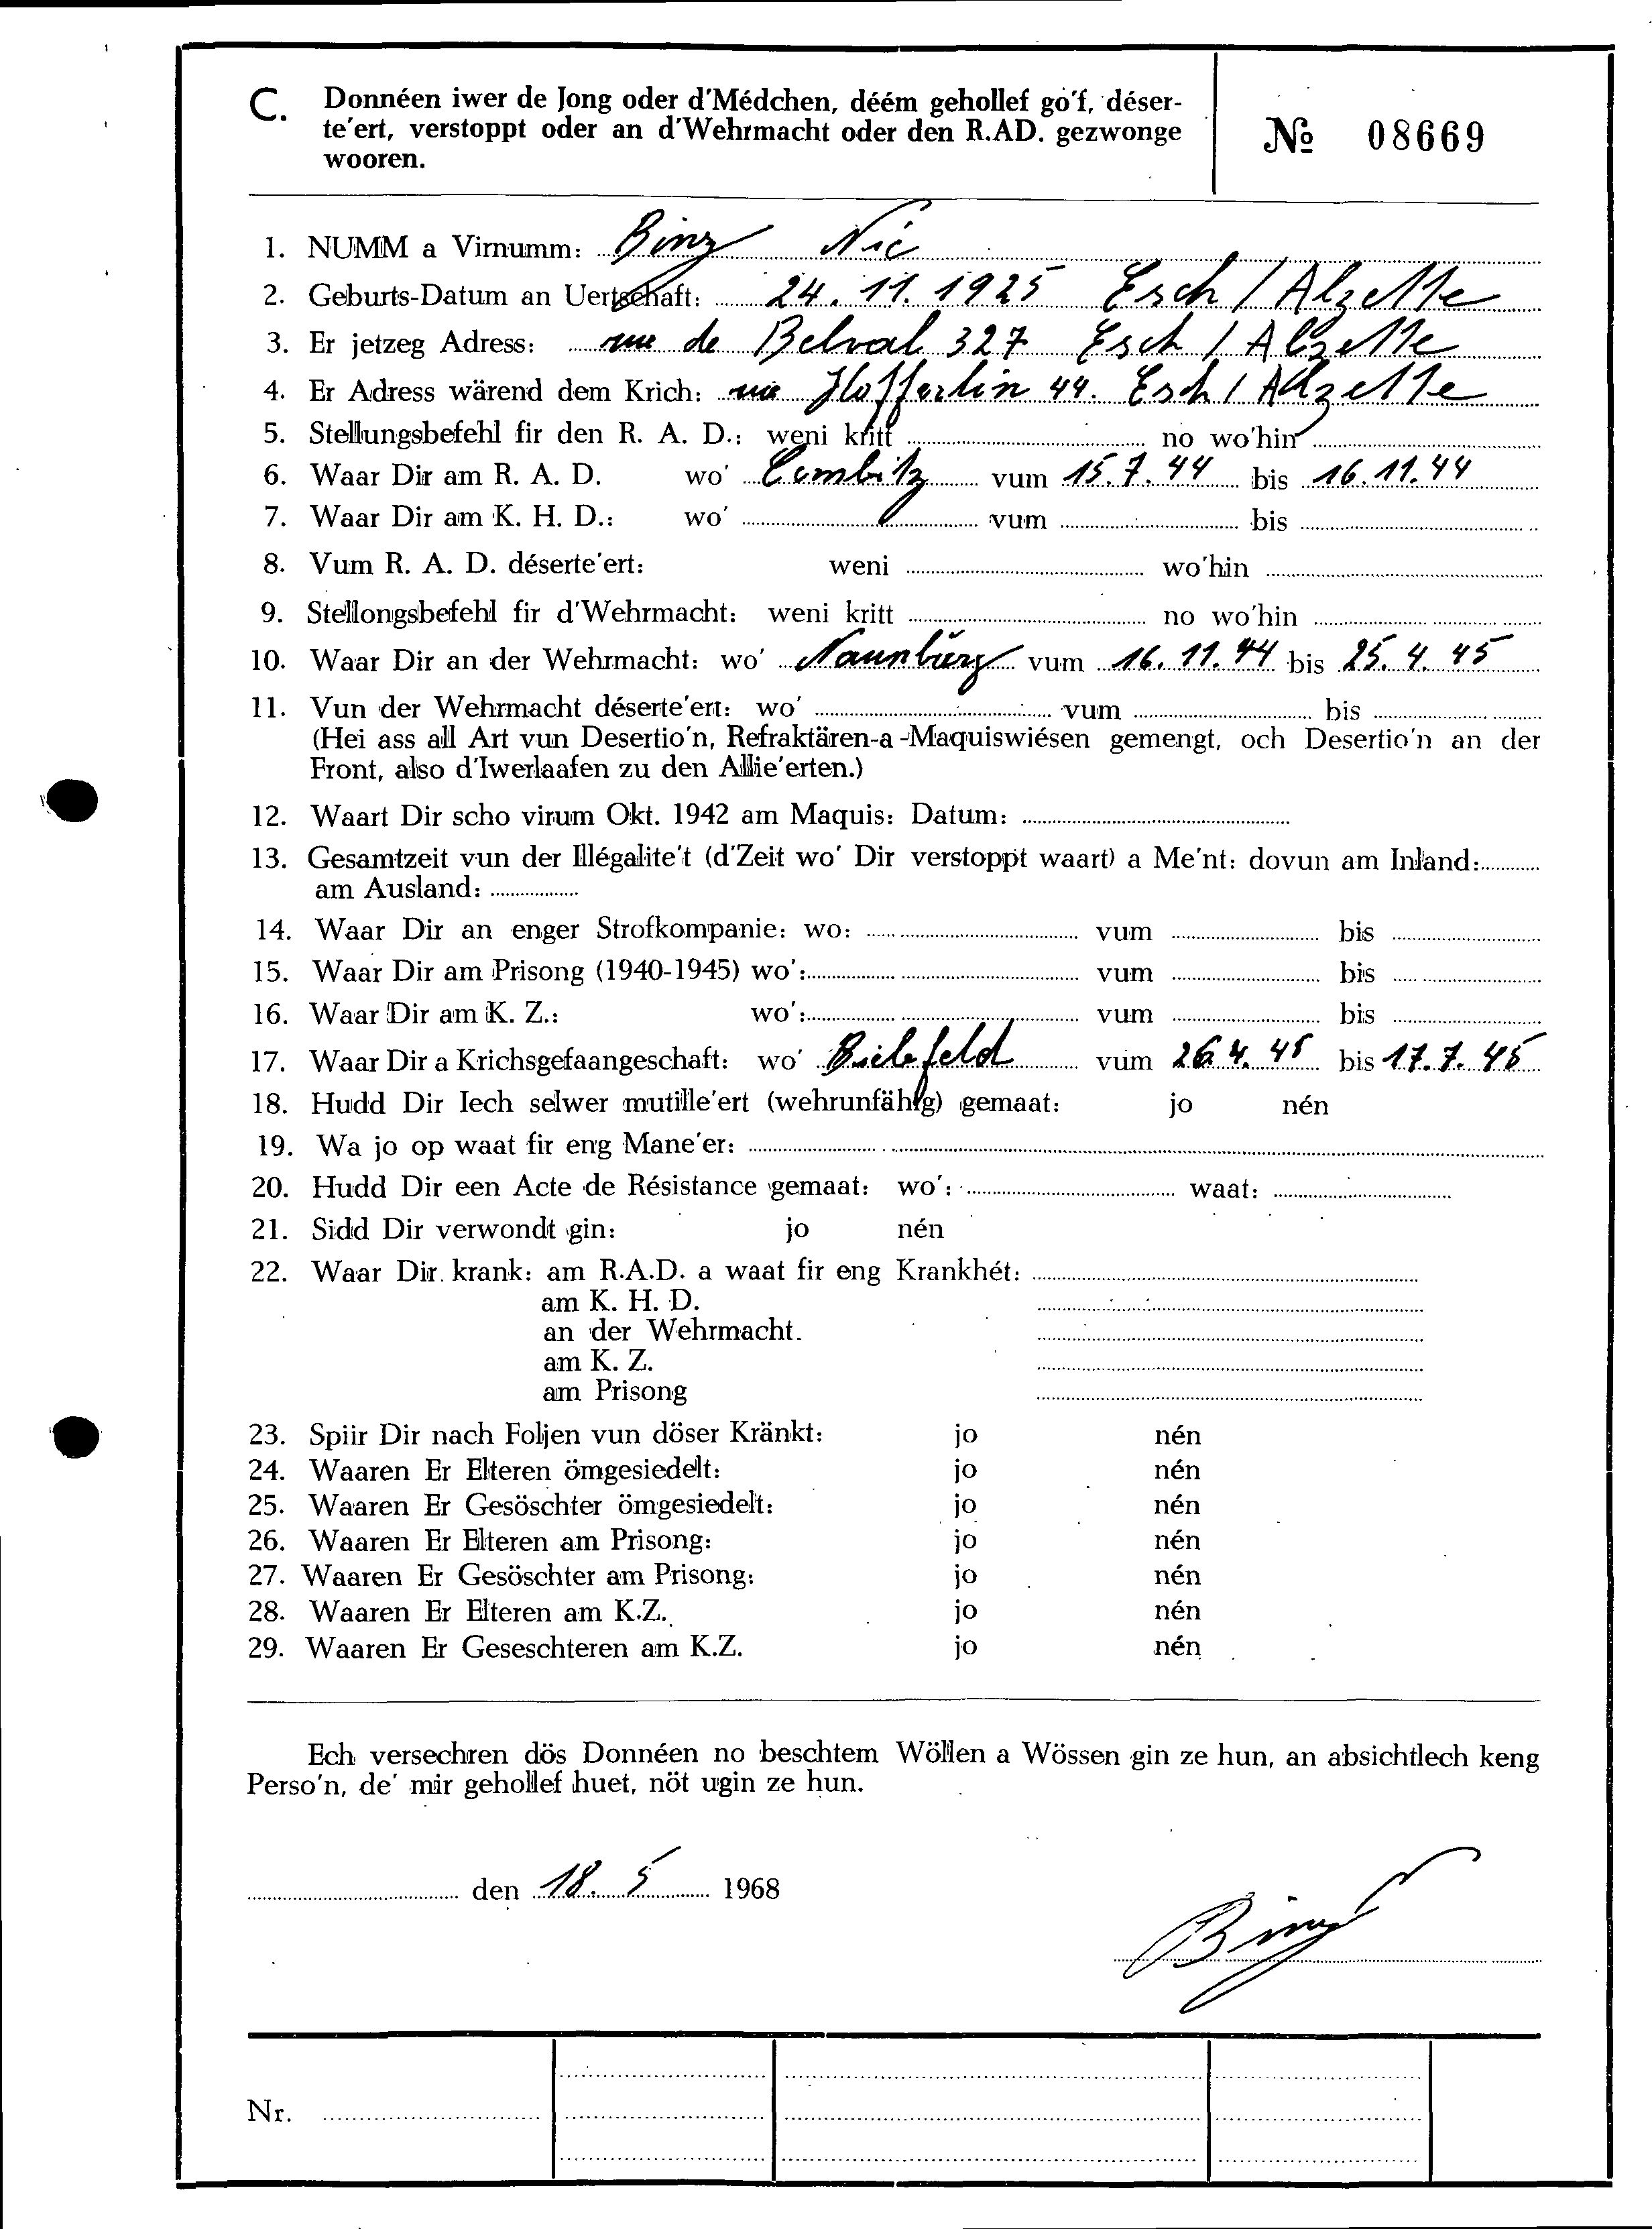 C. Donnéen iwer de Jong oder d'Médchen, déém gehollef go'f, déser-
te'ert, verstoppt oder an d'Wehrmacht oder den R.AD. gezwonge
wooren.
№ 08669
1. NUMM a Virnumm: Binz Nic
2. Geburts-Datum an Uertschaft: 24. 11. 1925 Esch / Alzette
3. Er jetzeg Adress: rue de Belval 327 Esch / Alzette
4. Er Adress wärend dem Krich: rue 44. Esch / Alzette
5. Stellungsbefehl fir den R. A. D.: weni kritt no wo'hin
6. Waar Dir am R. A. D. wo' vum 15. 7. 44 bis 16. 11. 44
7. Waar Dir am K. H. D.: wo' vum bis
8. Vum R. A. D. déserte'ert: weni wo'hin
9. Stellongsbefehl fir d'Wehrmacht: weni kritt no wo'hin
10. Waar Dir an der Wehrmacht: wo' Naunbŭrg vum 16. 11. 44 bis 25. 4. 45
11. Vun der Wehrmacht déserte'ert: wo' vum bis
(Hei ass all Art vun Desertio'n, Refraktären-a-Maquiswiésen gemengt, och Desertio'n an der
Front, also d'Iwerlaafen zu den Allie'erten.)
12. Waart Dir scho virum Okt. 1942 am Maquis: Datum:
13. Gesamtzeit vun der Illégalite't (d'Zeit wo' Dir verstoppt waart) a Me'nt: dovun am Inland:
am Ausland:
14. Waar Dir an enger Strofkompanie: wo: vum bis
15. Waar Dir am Prisong (1940-1945) wo': vum bis
16. Waar Dir am K. Z.: wo': vum bis
17. Waar Dir a Krichsgefaangeschaft: wo' Bielefeld vum 26. 4. 45 bis 17. 7. 45
18. Hudd Dir Iech selwer mutille'ert (wehrunfähig) gemaat: jo nén
19. Wa jo op waat fir eng Mane'er:
20. Hudd Dir een Acte de Résistance gemaat: wo': waat:
21. Sidd Dir verwondt gin: jo nén
22. Waar Dir krank: am R.A.D. a waat fir eng Krankhét:
am K. H. D.
an der Wehrmacht.
am K. Z.
am Prisong
23. Spiir Dir nach Foljen vun döser Kränkt: jo nén
24. Waaren Er Elteren ömgesiedelt: jo nén
25. Waaren Er Gesöschter ömgesiedelt: jo nén
26. Waaren Er Elteren am Prisong: jo nén
27. Waaren Er Gesöschter am Prisong: jo nén
28. Waaren Er Elteren am K.Z. jo nén
29. Waaren Er Geseschteren am K.Z. jo nén
Ech versechren dös Donnéen no beschtem Wöllen a Wössen gin ze hun, an absichtlech keng
Perso'n, de' mir gehollef huet, nöt ugin ze hun.
den 18. 5 1968
Binz
Nr.